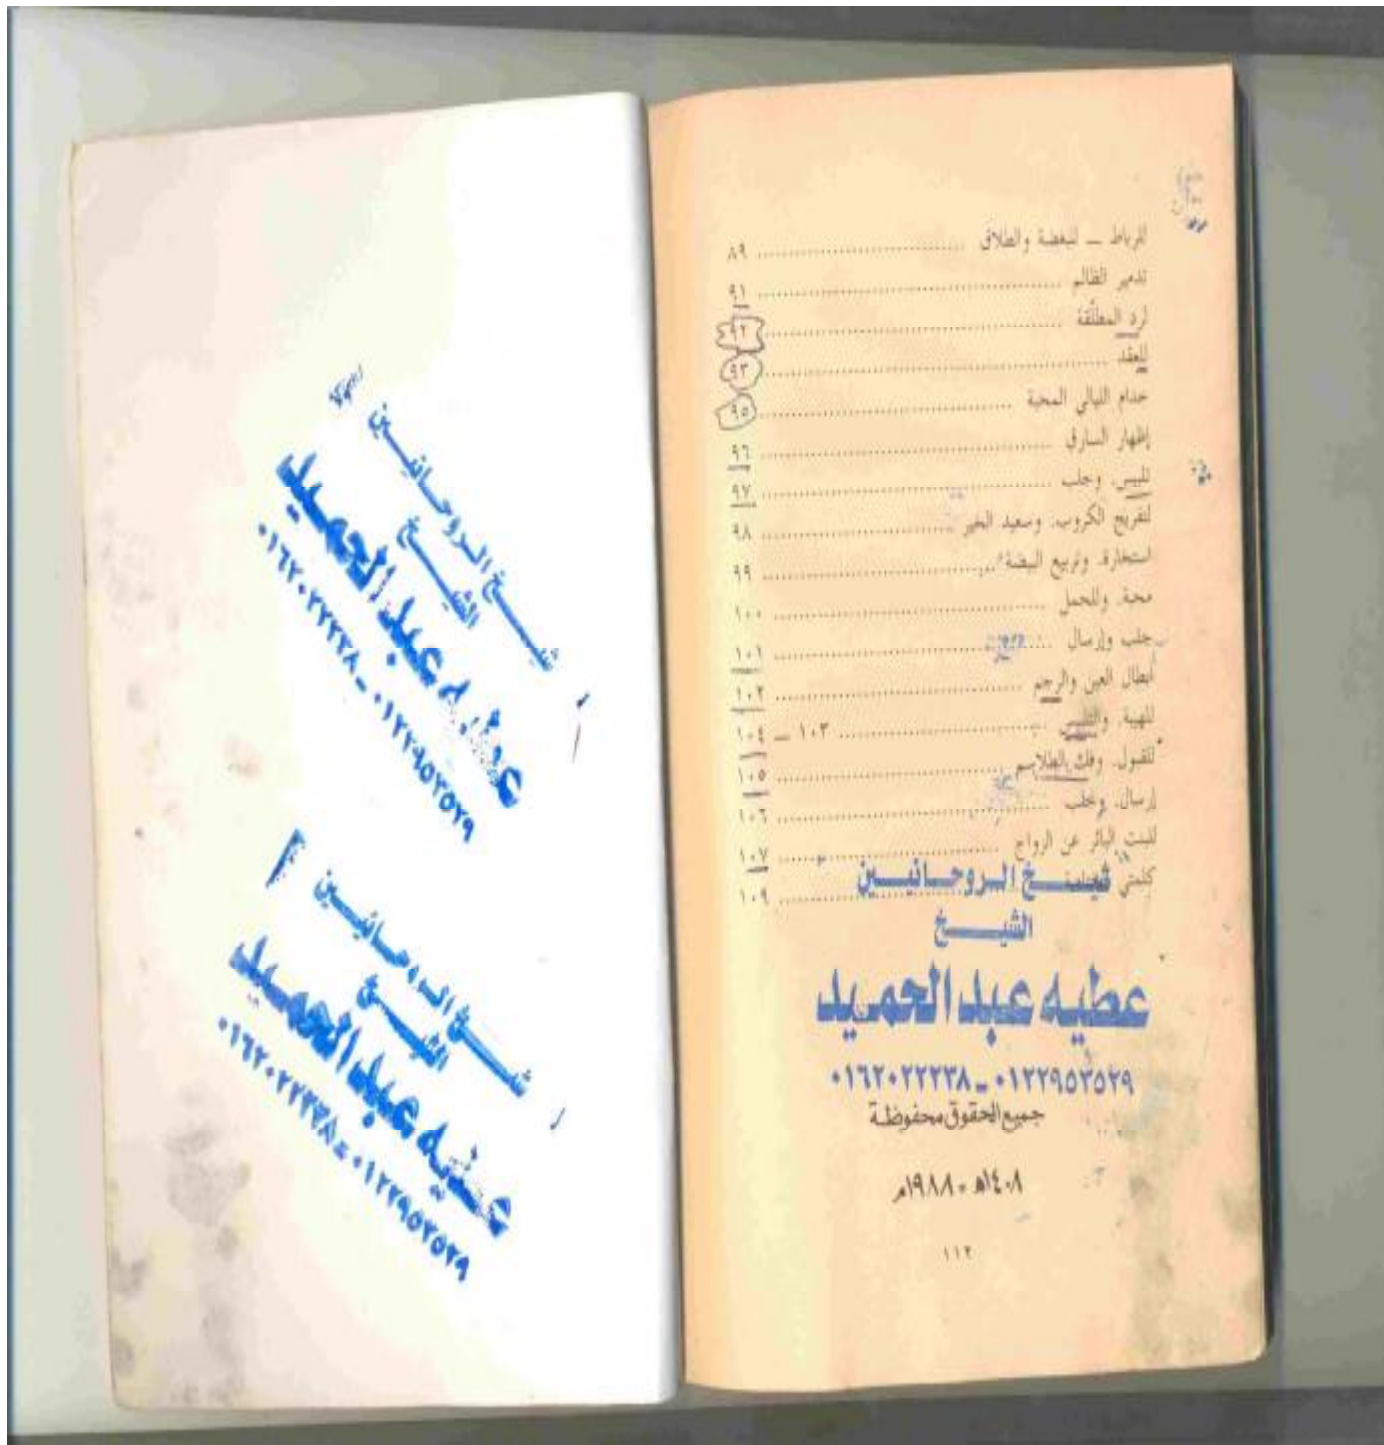 شيخ الروحانيين
الشيخ
عطيه عبد الحميد
٠١٦٢٠٢٢٢٣٨ - ٠١٢٢٩٥٣٥٢٩
شيخ الروحانيين
الشيخ
عطيه عبد الحميد
٠١٦٢٠٢٢٢٣٨ - ٠١٢٢٩٥٣٥٢٩
للرباط — للبغضة والطلاق ..... ٨٩
تدمير الظالم ..... ٩١
لرد المطلقة ..... ٩٢
للعقد ..... ٩٣
خدام الليالي المحبة ..... ٩٥
إظهار السارق ..... ٩٦
تلبيس. وجلب ..... ٩٧
لتفريج الكروب. وسعيد الخير ..... ٩٨
استخارة. وتربيع البيضة ..... ٩٩
محبة. وللحمل ..... ١٠٠
جلب وإرسال ..... ١٠١
أبطال العين والرجم ..... ١٠٢
للهيبة. والتلبيس ..... ١٠٣ — ١٠٤
للقبول. وفك الطلاسم ..... ١٠٥
إرسال. وجلب ..... ١٠٦
للبنت البائر عن الزواج ..... ١٠٧
كلمتي ..... ١٠٩
شيخ الروحانيين
الشيخ
عطيه عبد الحميد
٠١٦٢٠٢٢٢٣٨ - ٠١٢٢٩٥٣٥٢٩
جميع الحقوق محفوظة
١٤٠٨هـ - ١٩٨٨م
١١٢